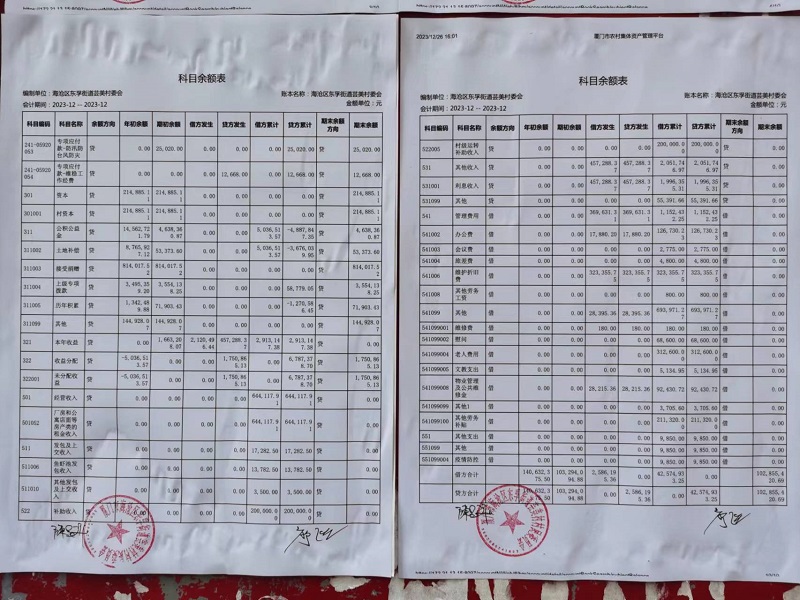 科目余额表
编制单位：海沧区东孚街道芸美村委会
账本名称：海沧区东孚街道芸美村委会
会计期间：2023-12 -- 2023-12
金额单位：元
科目编码 科目名称 余额方向 年初余额 期初余额 借方发生 贷方发生 借方累计 贷方累计 期末余额方向 期末余额
241-05920053 专项应付款-防汛防台风防灾 贷 0.00 25,020.00 0.00 0.00 0.00 25,020.00 贷 25,020.00
241-05920054 专项应付款-维稳工作经费 贷 0.00 0.00 0.00 12,668.00 0.00 12,668.00 贷 12,668.00
301 资本 贷 214,885.11 214,885.11 0.00 0.00 0.00 0.00 贷 214,885.11
301001 村资本 贷 214,885.11 214,885.11 0.00 0.00 0.00 0.00 贷 214,885.11
311 公积公益金 贷 14,562,721.79 4,638,360.87 0.00 0.00 5,036,513.57 -4,887,847.35 贷 4,638,360.87
311002 土地补偿 贷 8,765,927.12 53,373.60 0.00 0.00 5,036,513.57 -3,676,039.95 贷 53,373.60
311003 接受捐赠 贷 814,017.52 814,017.52 0.00 0.00 0.00 0.00 贷 814,017.52
311004 上级专项拨款 贷 3,495,359.20 3,554,138.25 0.00 0.00 0.00 58,779.05 贷 3,554,138.25
311005 历年积累 贷 1,342,489.88 71,903.43 0.00 0.00 0.00 -1,270,586.45 贷 71,903.43
311099 其他 贷 144,928.07 144,928.07 0.00 0.00 0.00 0.00 贷 144,928.07
321 本年收益 贷 0.00 1,663,208.07 2,120,496.44 457,288.37 2,913,147.38 2,913,147.38 贷 0.00
322 收益分配 贷 -5,036,513.57 0.00 0.00 1,750,865.13 0.00 6,787,378.70 贷 1,750,865.13
322001 未分配收益 贷 -5,036,513.57 0.00 0.00 1,750,865.13 0.00 6,787,378.70 贷 1,750,865.13
501 经营收入 贷 0.00 0.00 0.00 0.00 644,117.91 644,117.91 贷 0.00
501052 厂房和公寓店面等房产类的租金收入 贷 0.00 0.00 0.00 0.00 644,117.91 644,117.91 贷 0.00
511 发包及上交收入 贷 0.00 0.00 0.00 0.00 17,282.50 17,282.50 贷 0.00
511006 鱼虾池发包收入 贷 0.00 0.00 0.00 0.00 13,782.50 13,782.50 贷 0.00
511010 其他发包及上交收入 贷 0.00 0.00 0.00 0.00 3,500.00 3,500.00 贷 0.00
522 补助收入 贷 0.00 0.00 0.00 0.00 200,000.00 200,000.00 贷 0.00
2023/12/26 16:01
厦门市农村集体资产管理平台
科目余额表
编制单位：海沧区东孚街道芸美村委会
账本名称：海沧区东孚街道芸美村委会
会计期间：2023-12 -- 2023-12
金额单位：元
科目编码 科目名称 余额方向 年初余额 期初余额 借方发生 贷方发生 借方累计 贷方累计 期末余额方向 期末余额
522005 村级运转补助收入 贷 0.00 0.00 0.00 0.00 200,000.00 200,000.00 贷 0.00
531 其他收入 贷 0.00 0.00 457,288.37 457,288.37 2,051,746.97 2,051,746.97 贷 0.00
531001 利息收入 贷 0.00 0.00 457,288.37 457,288.37 1,996,355.31 1,996,355.31 贷 0.00
531099 其他 贷 0.00 0.00 0.00 0.00 55,391.66 55,391.66 贷 0.00
541 管理费用 借 0.00 0.00 369,631.31 369,631.31 1,152,432.25 1,152,432.25 借 0.00
541002 办公费 借 0.00 0.00 17,880.20 17,880.20 126,730.2 126,730.2 借 0.00
541003 会议费 借 0.00 0.00 0.00 0.00 2,775.00 2,775.00 借 0.00
541004 旅差费 借 0.00 0.00 0.00 0.00 4,800.00 4,800.00 借 0.00
541006 维护折旧费 借 0.00 0.00 323,355.75 323,355.75 323,355.75 323,355.75 借 0.00
541008 其他劳务工资 借 0.00 0.00 0.00 0.00 800.00 800.00 借 0.00
541099 其他 借 0.00 0.00 28,395.36 28,395.36 693,971.27 693,971.27 借 0.00
541099001 维修费 借 0.00 0.00 180.00 180.00 180.00 180.00 借 0.00
541099002 慰问 借 0.00 0.00 0.00 0.00 68,600.00 68,600.00 借 0.00
541099004 老人费用 借 0.00 0.00 0.00 0.00 312,600.00 312,600.00 借 0.00
541099005 文教支出 借 0.00 0.00 0.00 0.00 5,134.95 5,134.95 借 0.00
541099008 物业管理及公共维修金 借 0.00 0.00 28,215.36 28,215.36 92,430.72 92,430.72 借 0.00
541099099 其他1 借 0.00 0.00 0.00 0.00 3,705.60 3,705.60 借 0.00
541099100 其他劳务补贴 借 0.00 0.00 0.00 0.00 211,320.00 211,320.00 借 0.00
551 其他支出 借 0.00 0.00 0.00 0.00 9,850.00 9,850.00 借 0.00
551099 其他 借 0.00 0.00 0.00 0.00 9,850.00 9,850.00 借 0.00
551099004 疫情防控 借 0.00 0.00 0.00 0.00 9,850.00 9,850.00 借 0.00
借方合计 140,632,375.50 103,294,094.88 2,586,195.36 0.00 42,574,933.25 0.00 102,855,420.69
贷方合计 140,632,375.50 103,294,094.88 0.00 2,586,195.36 0.00 42,574,933.25 102,855,420.69